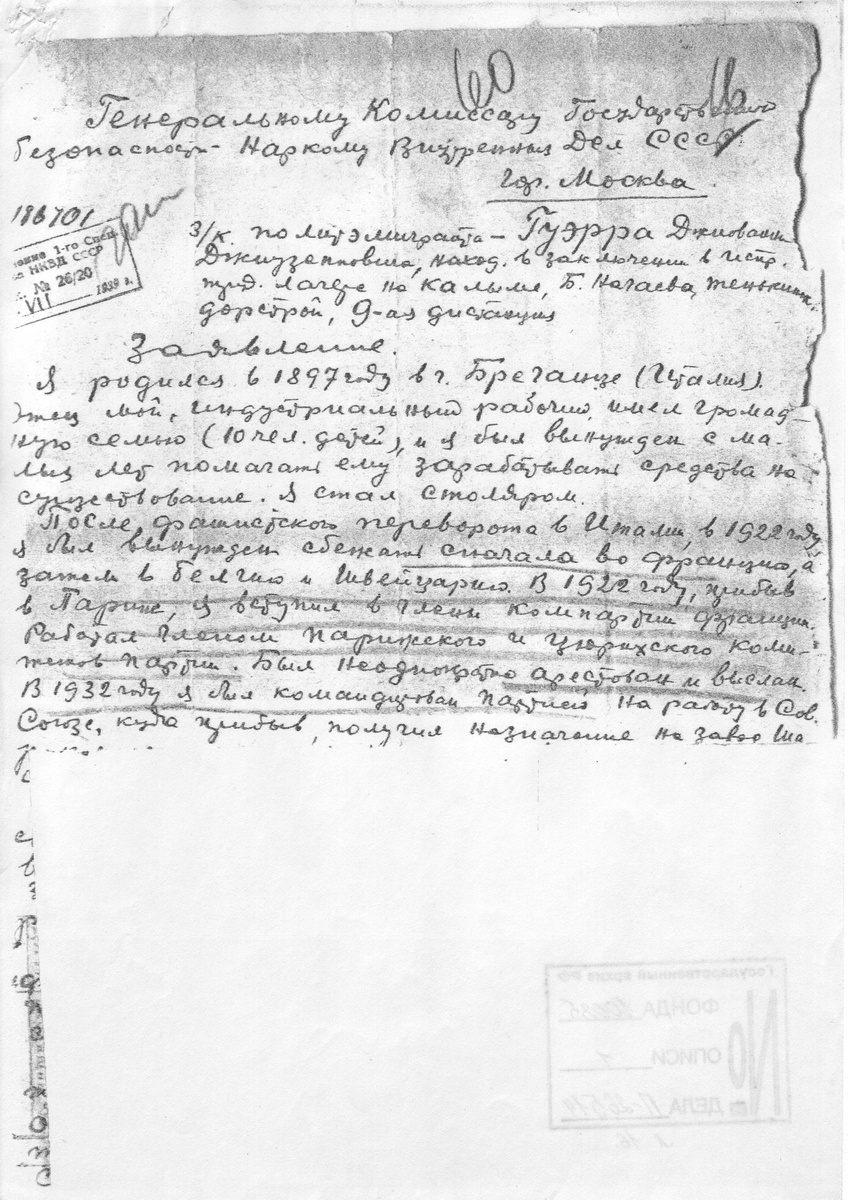 60
Генеральному Комиссару Государственной
безопасности - Наркому Внутренных Дел СССР
гор. Москва
186701
1-го Спец.
НКВД СССР
№ 26/20
VII 1939 г.
З/к. политэмигранта - Гуэрра Джиованни
Джиузепповича, наход. в заключении в испр.
труд. лагере на Калыме, Б. Нагаева, Тенькин.
дорстрой, 9-ая дистанция
Заявление.
Я родился в 1897 году в г. Бреганзе (Италия).
Отец мой, индустриальный рабочий имел громад-
ную семью (10 чел. детей), и я был вынужден с ма-
лых лет помагать ему зарабатывать средства на
существование. Я стал столяром.
После фашистского переворота в Италии, в 1922 году
я был вынужден сбежать сначала во францию, а
затем в Белгию и Швейцарию. В 1922 году, прибыв
в Париж, я вступил в члены Компартии Франции.
Работал членом парижского и цюрихского коми-
тетов партии. Был неоднократно арестован и выслан.
В 1932 году я был командирован партией на работу в Сов.
Союзе, куда прибыв, получил назначение на завод Ша
Государственный архив РФ
№
ФОНДА 10035
ОПИСИ 1
ДЕЛА
л 16